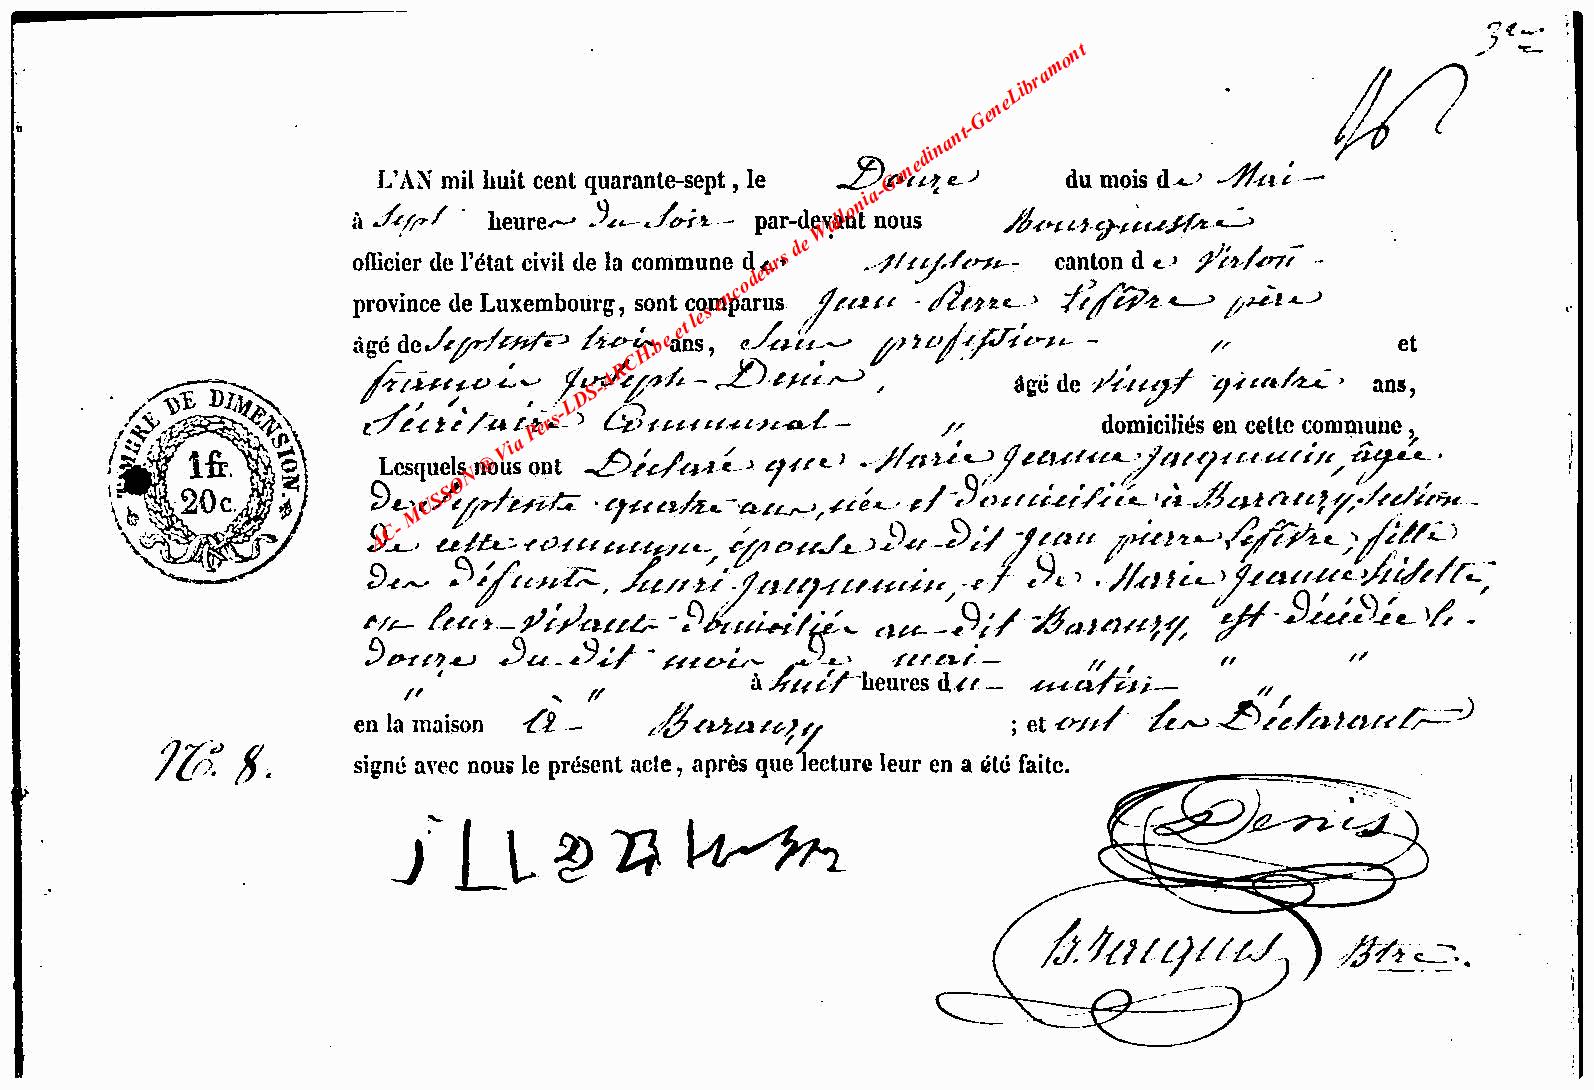 3e
L'AN mil huit cent quarante-sept, le Douze du mois de Mai
à Sept heures du Soir par-devant nous Bourgmestre
officier de l'état civil de la commune de Musson canton de Virton
province de Luxembourg, sont comparus Jean Pierre Lefèvre père
âgé de Septente trois ans, Sans profession " et
françois Joseph Denis, âgé de vingt quatre ans,
Sécrétaire Communal " domiciliés en cette commune,
Lesquels nous ont Déclaré que Marie Jeanne Jacquemin, âgée
de Septente quatre ans, née et domiciliée à Baranzy, Section
De cette commune, épouse du dit Jean pierre Lefèvre, fille
des défunts, henri Jacquemin, et de Marie Jeanne
en leur vivant domiciliés au dit Baranzy, est décédée le
douze du dit mois de mai " " "
" " à huit heures du matin "
en la maison à Baranzy ; et ont les Déclarants
signé avec nous le présent acte, après que lecture leur en a été faite.
TIMBRE DE DIMENSION.
1fr.
20c.
No. 8.
Denis
Jacques Btre
AC- MUSSON @ Via Pers-LDS-ARCH.be et les encodeurs de Wallonia-Genedinant-GeneLibramont